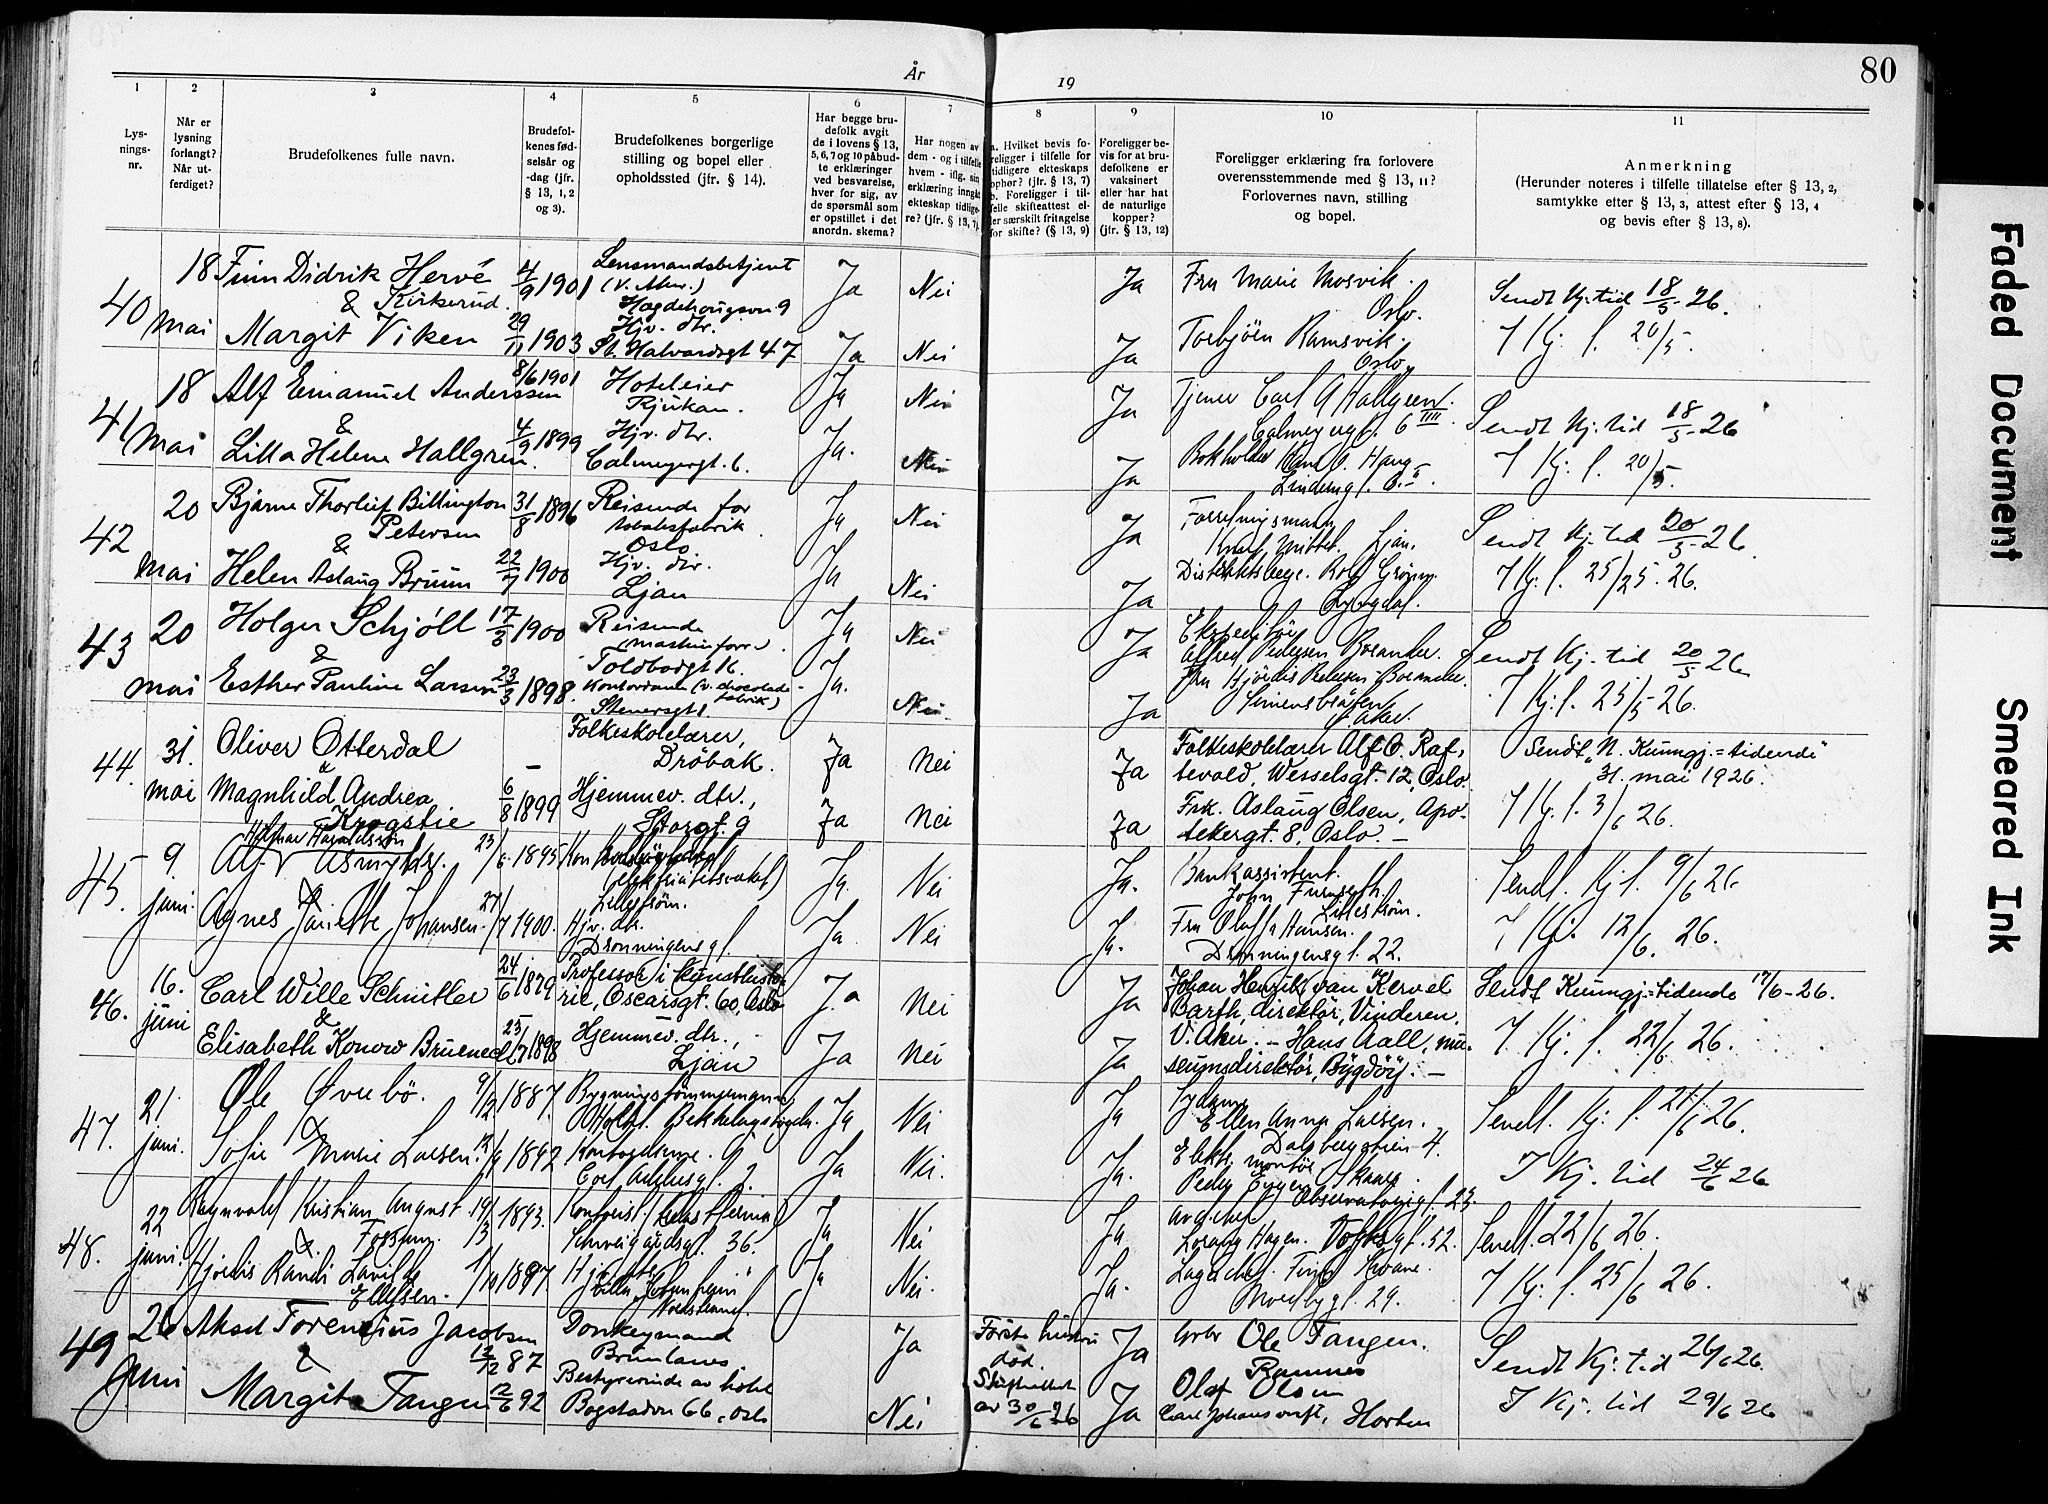 80
År
19
1
2
3
4
5
6
7
8
9
10
11
Lys-
nings-
nr.
Når er
lysning
forlangt?
Når ut-
ferdiget?
Brudefolkenes fulle navn.
Brudefol-
kenes fød-
selsår og
-dag (jfr.
§ 13, 1, 2
og 3).
Brudefolkenes borgerlige
stilling og bopel eller
opholdssted (jfr. § 14).
Har begge bru-
defolk avgit
de i lovens § 13,
5, 6, 7 og 10 påbud-
te erklæringer
ved besvarelse,
hver for sig, av
de spørsmål som
er opstillet i det
anordn. skema?
Har nogen av
dem - og i tilfelle
hvem - iflg. sin
erklæring inngåt
ekteskap tidlige-
re? (jfr. § 13, 7).
a. Hvilket bevis fo-
religger i tilfelle for
tidligere ekteskaps
ophør? (jfr. § 13, 7)
b. Foreligger i til-
felle skifteattest el-
ler særskilt fritagelse
for skifte? (§ 13, 9)
Foreligger be-
vis for at bru-
defolkene er
vaksinert
eller har hat
de naturlige
kopper?
(jfr. § 13, 12)
Foreligger erklæring fra forlovere
overensstemmende med § 13, 11?
Forlovernes navn, stilling
og bopel.
Anmerkning
(Herunder noteres i tilfelle tillatelse efter § 13, 2,
samtykke efter § 13, 3, attest efter § 13, 4
og bevis efter § 13, 8).
40
18
mai
Finn Didrik Hervé
& Kirkerud
4/9 1901
Lensmandsbetjent
(V. Aker.)
Hagdehougsvn 9
Ja
Nei
Ja
Fru Marie Mosvik.
Oslo.
Sendt Kj. tid 18/5-26.
Margit Viken
29/11 1903
Hjv. dtr.
St. Halvardsgt 47
Ja
Nei
Ja
Torbjörn Ramsvik.
Oslo.
I Kj. t. 20/5.
41
18
Mai
Alf Emanuel Anderssen
&
8/6 1901
Hoteleier
Rjukan.
Ja
Nei
Ja
Tjener Carl A Hallgren.
Calmeyergt. 6 IIII
Sendt Kj. tid 18/5-26
Lilla Helene Hallgren.
4/9 1899
Hjv. dtr.
Calmeyergt. 6.
Ja.
Nei
Ja
Bokholder
Haug
I Kj. t. 20/5.
42
20
Mai
Bjarne Thorleif Billington
Petersen
&
31/8 1896
Reisende for
tobaksfabrik
Oslo
Ja
Nei
Ja
Forretningsmann
Ljan.
Sendt Kj. tid 20/5-26.
Helen Aslaug Bruun
22/7 1900
Hjv. dtr.
Ljan
Ja
Nei
Ja
Rolf
I Kj. t. 25/25. 26.
43
20
mai
Holger Schjöll
&
17/3 1900
Reisende
(maskinforr.)
Toldbodgt 16.
Ja
Nei
Ja
Ekspeditör
Alfred Pedersen Borander.
Sendt Kj. tid 20/5 26
Esther Pauline Larsen
23/3 1898.
Kontordame (v. chocolade-
fabrik)
Stenersgt 1
Ja.
Nei.
Ja
Fru Hjördis
Aker.
I Kj. t. 25/5-26.
44.
31.
mai
Oliver Otterdal
&
-
Folkeskolelærer,
Dröbak.
Ja
Nei
Ja
Folkeskolelærer Alf O. Raf-
tevold, Wesselsgt. 12, Oslo.
Sendt „N. Kunngj.=tidende"
31. mai 1926.
Magnhild Andrea
Krogstie
6/8 1899
Hjemmev. dtr.,
Storgt. 9
Ja
Nei
Ja
Frk. Aslaug Olsen, Apo-
tekergt. 8, Oslo. -
I Kj. t. 3/6 26.
45.
9.
juni.
Hilmar Haraldssön
&
23/6. 1895
(elektricitetsverket)
Lilleström.
Ja.
Nei
Ja.
Bankassistent.
John Furuseth.
Lilleström.
Sendt. Kj. t. 9/6 26.
Agnes Johansen.
27/7 1900.
Hjv. dtr.
Dronningensgt.
Ja.
Nei
Ja.
Fru Olaf Hansen.
Dronningensgt. 22.
I Kj. 12/6. 26.
46.
16.
juni
Carl Wille Schnitler
&
24/6 1879
Professor i kunsthisto-
rie, Oscarsgt. 60, Oslo
Ja
Nei
Ja
Johan Henrik van Kervel
Barth, direktör, Vinderen,
V. Aker. - Hans Aall, mu-
seumsdirektör, Bygdöy. -
Sendt Kunngj.=tidende 17/6-26.
Elisabeth Konow Bruenech
25/7 1898
Hjemmev. dtr.,
Ljan
Ja
Nei
Ja
I Kj. t. 22/6 26.
47.
21.
juni.
Ole Överbö.
&
9/2 1887.
Bygningstömmermann
Bekkelagshögda.
Ja
Nei
Ja
Sydame
Ellen Anna Larsen.
Dalsbergstien 4.
Sendt. Kj. t. 21/6 26.
Sofie Marie Larsen.
1892
Kontordame.
Carl Adolfsgt. 2.
Ja
Nei.
Ja.
Elektr. montör
Peder Skaar.
Observatoriegt. 23.
I Kj. tid 24/6 26
48.
22
juni.
Ragnvald Kristian August
Fossum.
&
19/3 1893.
Kontorist
Schweigaardsgt. 36.
Ja
Nei
Ja
Lorang Hagen. Toftesgt. 52.
Sendt. 22/6 26.
Hjördis Randi
Ellefsen.
1/10 1897.
Nordstrand.
Ja
Nei.
Ja.
Lagerchef. Finn
29.
I Kj. t. 25/6 26.
49
26
Juni
Aksel Jacobsen
&
12/12 87
Donkeymand
Brunlanes.
Ja
Förste hustru
död.
Skifteattest
av 30/6 26
Ja
Grbr Ole Tangen.
Ramnes
Sendt Kj. tid 26/6 26.
Margit Tangen
12/6 92
Bestyrerinde av hotel
Bogstadvn 66, Oslo
Nei
Ja
Olaf Olsen
Carl Johans verft, Horten
I Kj. tid 29/6 26
Faded Document
Smeared Ink